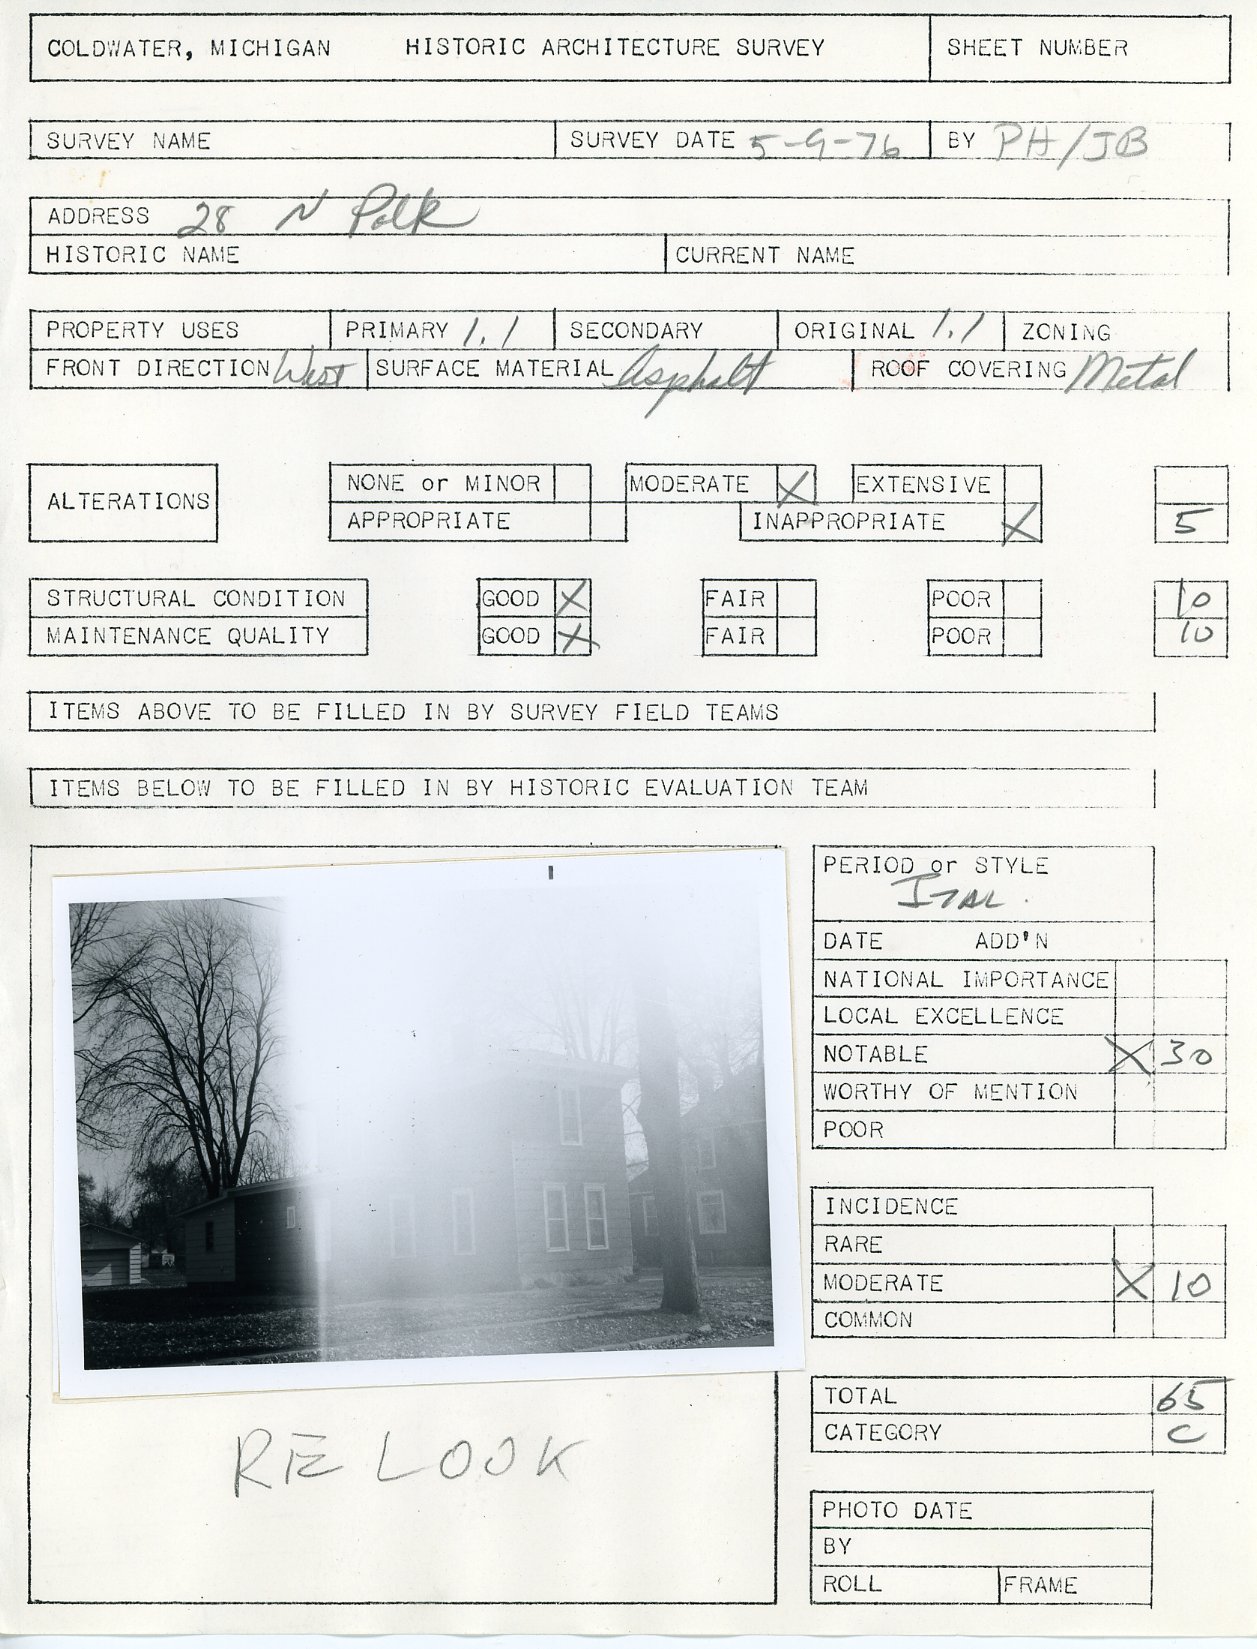 COLDWATER, MICHIGAN HISTORIC ARCHITECTURE SURVEY SHEET NUMBER
SURVEY NAME SURVEY DATE 5-9-76 BY PH/JB
ADDRESS 28 N Polk
HISTORIC NAME CURRENT NAME
PROPERTY USES PRIMARY 1.1 SECONDARY ORIGINAL 1.1 ZONING
FRONT DIRECTION West SURFACE MATERIAL Asphalt ROOF COVERING Metal
ALTERATIONS NONE or MINOR MODERATE X EXTENSIVE
APPROPRIATE INAPPROPRIATE X 5
STRUCTURAL CONDITION GOOD X FAIR POOR 10
MAINTENANCE QUALITY GOOD X FAIR POOR 10
ITEMS ABOVE TO BE FILLED IN BY SURVEY FIELD TEAMS
ITEMS BELOW TO BE FILLED IN BY HISTORIC EVALUATION TEAM
PERIOD or STYLE
ITAL.
DATE ADD'N
NATIONAL IMPORTANCE
LOCAL EXCELLENCE
NOTABLE X 30
WORTHY OF MENTION
POOR
INCIDENCE
RARE
MODERATE X 10
COMMON
TOTAL 65
CATEGORY C
RE LOOK
PHOTO DATE
BY
ROLL FRAME